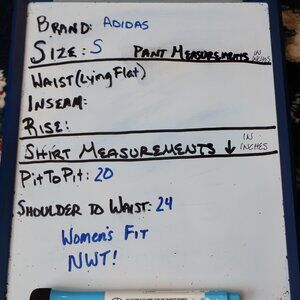 BRAND: ADIDAS
SIZE: S PANT MEASUREMENTS IN INCHES
WAIST (Lying Flat)
INSEAM:
RISE:
SHIRT MEASUREMENTS ↓ IN INCHES
PitToPit: 20
SHOULDER TO WAIST: 24
Women's Fit
NWT!